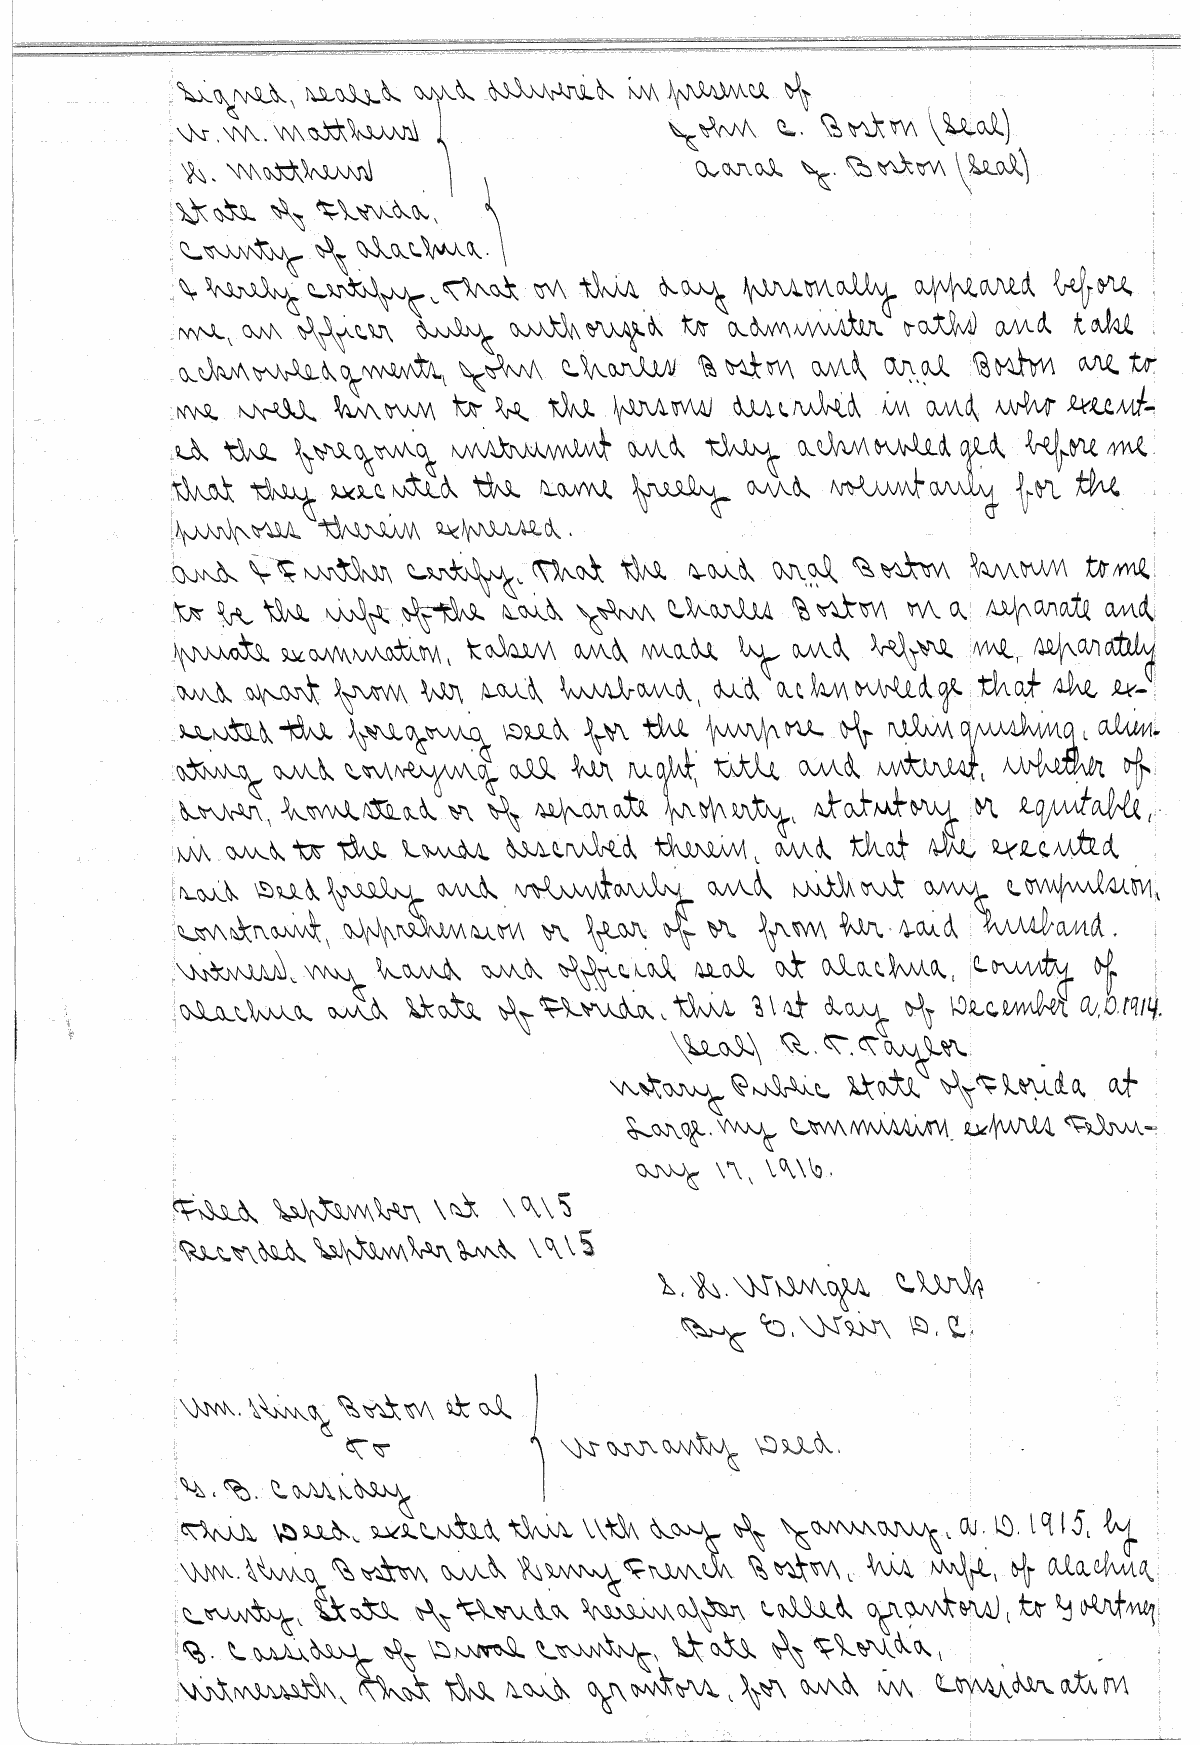 Signed, sealed and delivered in presence of
W. M. Matthews John C. Boston (Seal)
H. Matthews Aaral J. Boston (Seal)
State of Florida,
County of Alachua.
I hereby certify, That on this day personally appeared before
me, an officer duly authorised to administer oaths and take
acknowledgments, John Charles Boston and Aral Boston are to
me well known to be the persons described in and who execut-
ed the foregoing instrument and they acknowledged before me
that they executed the same freely and voluntarily for the
purposes therein expressed.
And I Further certify, That the said Aral Boston known to me
to be the wife of the said John Charles Boston on a separate and
private examination, taken and made by and before me, separately
and apart from her said husband, did acknowledge that she ex-
ecuted the foregoing Deed for the purpose of relinquishing, alien-
ating and conveying all her right, title and interest, whether of
dower, homestead or of separate property, statutory or equitable,
in and to the lands described therein, and that she executed
said Deed freely and voluntarily and without any compulsion,
constraint, apprehension or fear of or from her said husband.
Witness, my hand and official seal at Alachua, County of
Alachua and State of Florida, this 31st day of December A.D. 1914.
(Seal) R. T. Taylor
Notary Public State of Florida at
Large. My commission expires Febru-
ary 17, 1916.
Filed September 1st 1915
Recorded September 2nd 1915
S. H. Wienges Clerk
By E. Weir D. C.
Wm. King Boston et al
To Warranty Deed.
G. B. Cassidey
This Deed, executed this 11th day of January, A. D. 1915, by
Wm. King Boston and Henry French Boston, his wife, of Alachua
County, State of Florida hereinafter called grantors, to Goertner
B. Cassidey of Duval County, State of Florida,
Witnesseth, That the said grantors, for and in consideration